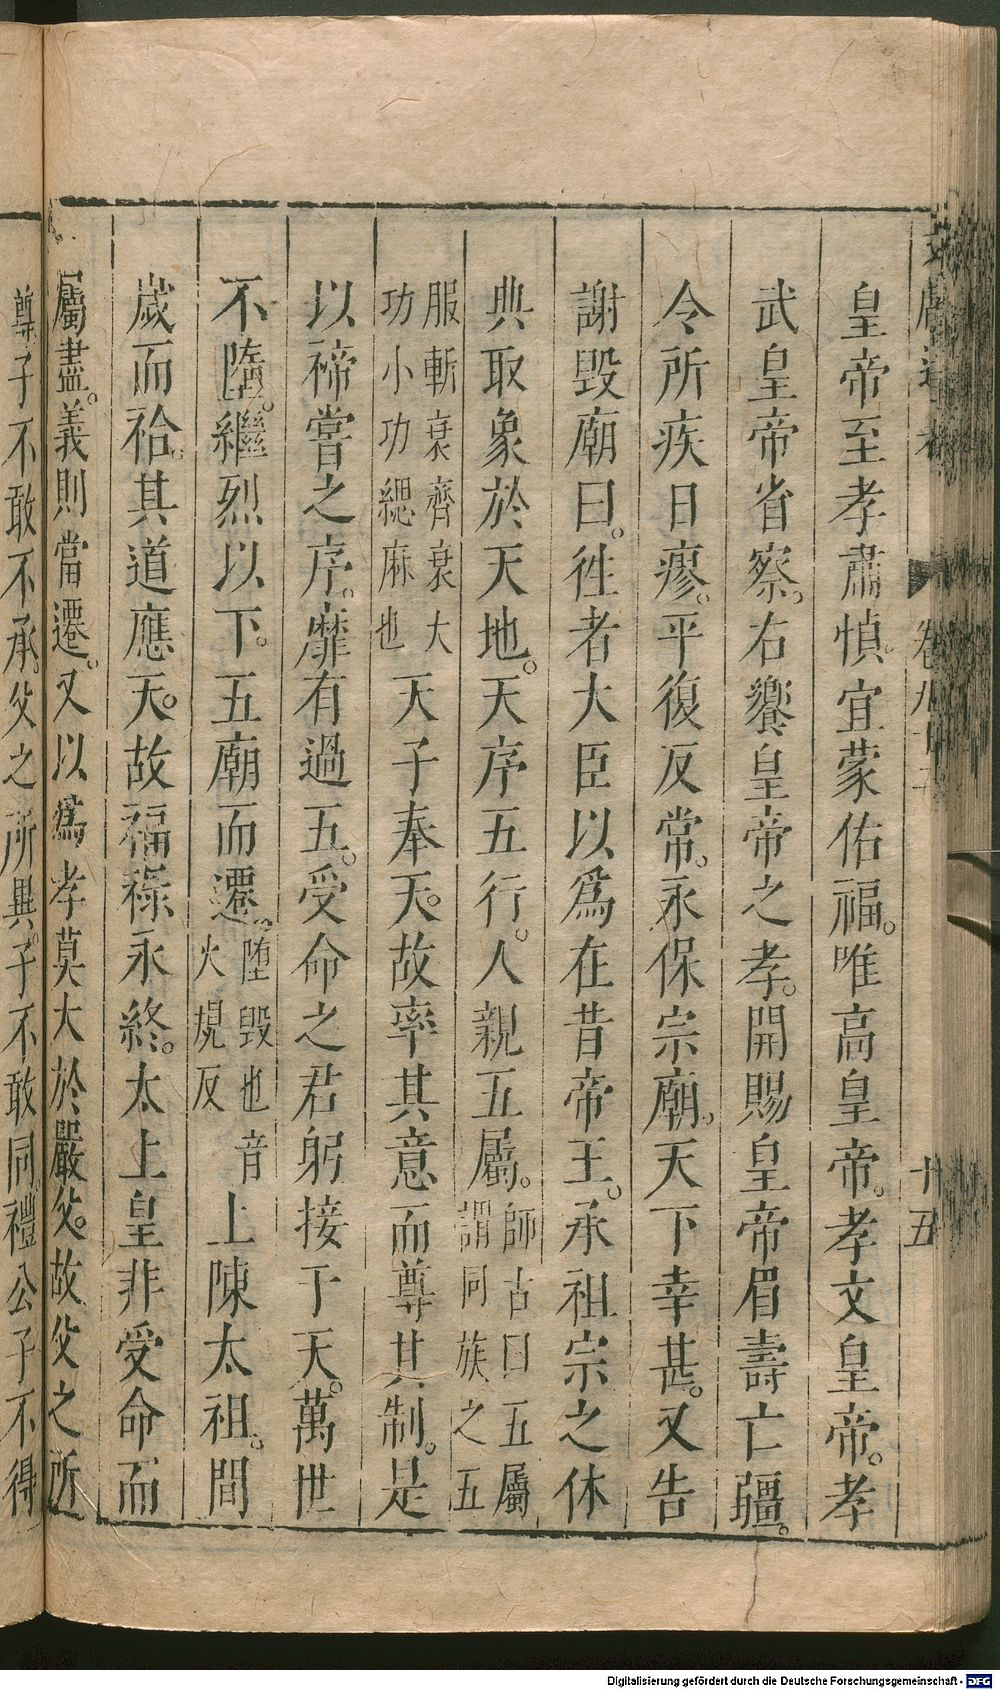 十五
皇帝至孝肅慎。宜蒙佑福。唯高皇帝。孝文皇帝。孝
武皇帝省察。右饗皇帝之孝。開賜皇帝眉壽亡疆。
令所疾日瘳。平復反常。永保宗廟。天下幸甚。又告
謝毀廟曰。徃者大臣以爲在昔帝王。承祖宗之休
典取象於天地。天序五行。人親五屬。師古曰五屬謂同族之五
服斬衰齊衰大功小功緦麻也天子奉天。故率其意而尊其制。是
以禘嘗之序。靡有過五。受命之君躬接于天。萬世
不墮。繼烈以下。五廟而遷。墮毀也音火規反上陳太祖。間
歲而祫。其道應天。故福祿永終。太上皇非受命而
屬盡。義則當遷。又以爲孝莫大於嚴父。故父之所
尊子不敢不承。父之所異。子不敢同。禮公子不得
Digitalisierung gefördert durch die Deutsche Forschungsgemeinschaft - DFG